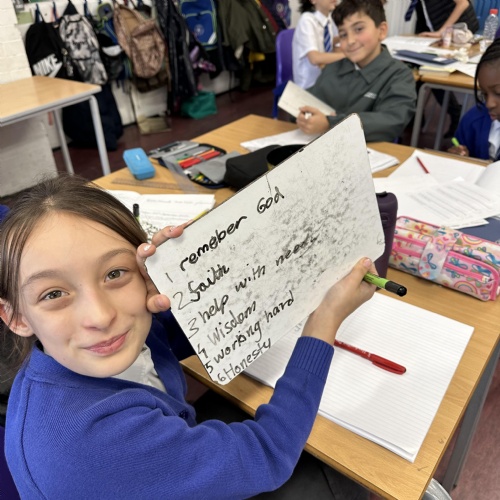 1 remember God
2 faith
3 help with need
4 Wisdom
5 working hard
6 Honesty
NIKE